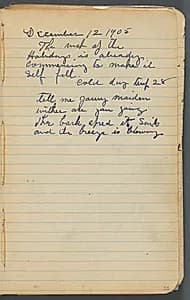 December 12 1905
The                of the
Holidays is already
commencing to make it
self felt
Cold day temp 28
tell me        maiden
            are you
The bark, spred its Sails
and the breeze is blowing